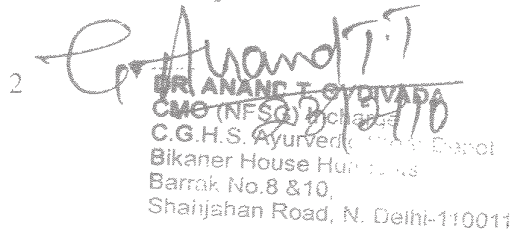 2
G. Anand T.T
DR. ANAND T. OVDIVADA
CMO (NFSG) Incharge
C.G.H.S. Ayurvedic Depot
Bikaner House
Barrak No.8 &10,
Shahjahan Road, N. Delhi-110011